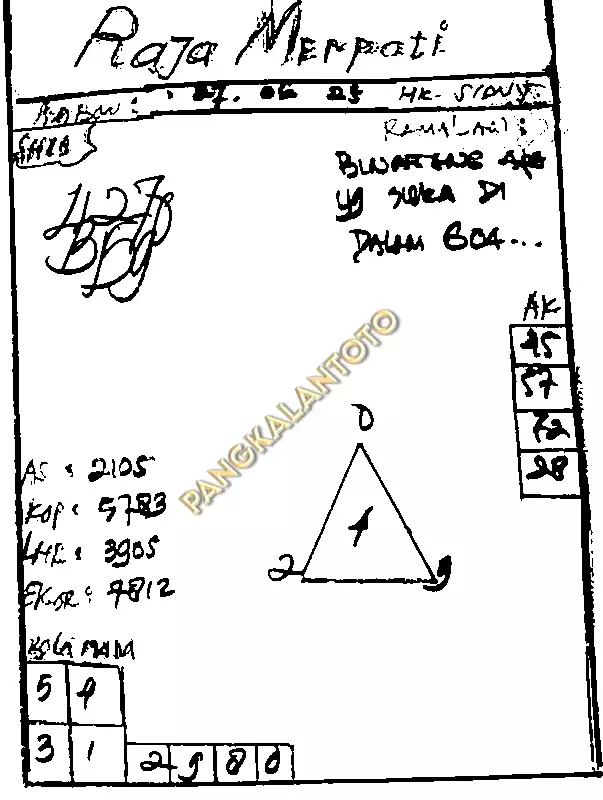 Raja Merpati
RABU : 27. 06 25 HK. SIANG
SHIO
RAMALAN :
BINATANG APA
yg SUKA DI
DALAM GOA...
AK
45
57
72
28
PANGKALANTOTO
0
1
2 9
AS : 2105
KOP : 5783
KPL : 3905
EKOR : 7812
BOLA MATA
5 4
3 1
2 9 8 0